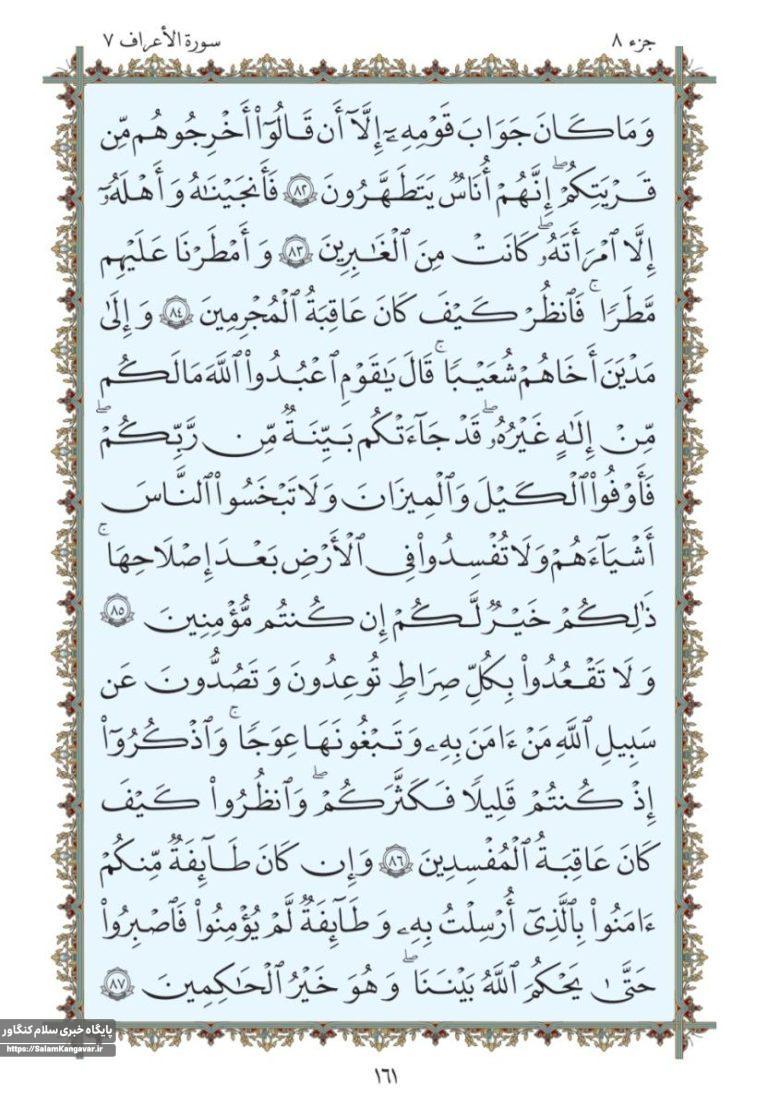 جزء ٨
سورة الأعراف ٧
وَمَا كَانَ جَوَابَ قَوْمِهِۦٓ إِلَّآ أَن قَالُوٓا۟ أَخْرِجُوهُم مِّن
قَرْيَتِكُمْۖ إِنَّهُمْ أُنَاسٌ يَتَطَهَّرُونَ ٨٢ فَأَنجَيْنَٰهُ وَأَهْلَهُۥٓ
إِلَّا ٱمْرَأَتَهُۥۖ كَانَتْ مِنَ ٱلْغَٰبِرِينَ ٨٣ وَأَمْطَرْنَا عَلَيْهِم
مَّطَرًاۚ فَٱنظُرْ كَيْفَ كَانَ عَاقِبَةُ ٱلْمُجْرِمِينَ ٨٤ وَإِلَىٰ
مَدْيَنَ أَخَاهُمْ شُعَيْبًاۚ قَالَ يَٰقَوْمِ ٱعْبُدُوا۟ ٱللَّهَ مَالَكُم
مِّنْ إِلَٰهٍ غَيْرُهُۥۖ قَدْ جَآءَتْكُم بَيِّنَةٌ مِّن رَّبِّكُمْۖ
فَأَوْفُوا۟ ٱلْكَيْلَ وَٱلْمِيزَانَ وَلَا تَبْخَسُوا۟ ٱلنَّاسَ
أَشْيَآءَهُمْ وَلَا تُفْسِدُوا۟ فِى ٱلْأَرْضِ بَعْدَ إِصْلَٰحِهَاۚ
ذَٰلِكُمْ خَيْرٌ لَّكُمْ إِن كُنتُم مُّؤْمِنِينَ ٨٥
وَلَا تَقْعُدُوا۟ بِكُلِّ صِرَٰطٍ تُوعِدُونَ وَتَصُدُّونَ عَن
سَبِيلِ ٱللَّهِ مَنْ ءَامَنَ بِهِۦ وَتَبْغُونَهَا عِوَجًاۚ وَٱذْكُرُوٓا۟
إِذْ كُنتُمْ قَلِيلًا فَكَثَّرَكُمْۖ وَٱنظُرُوا۟ كَيْفَ
كَانَ عَاقِبَةُ ٱلْمُفْسِدِينَ ٨٦ وَإِن كَانَ طَآئِفَةٌ مِّنكُمْ
ءَامَنُوا۟ بِٱلَّذِىٓ أُرْسِلْتُ بِهِۦ وَطَآئِفَةٌ لَّمْ يُؤْمِنُوا۟ فَٱصْبِرُوا۟
حَتَّىٰ يَحْكُمَ ٱللَّهُ بَيْنَنَاۖ وَهُوَ خَيْرُ ٱلْحَٰكِمِينَ ٨٧
پایگاه خبری سلام کنگاور
https://SalamKangavar.ir
١٦١